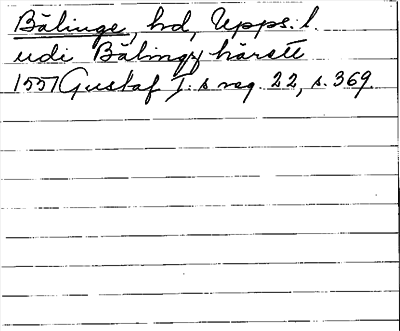 Bälinge, hd, Upps. l.
udi Bälingz häratt
1557 Gustaf I:s reg. 22, s. 369.